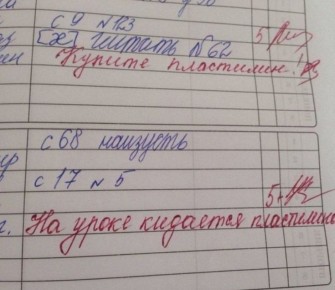 с 9 № 123
[х] читать № 62
5
Купите пластилин!
с 68 наизусть
с 17 № 5
5+
г. На уроке кидается пластилино